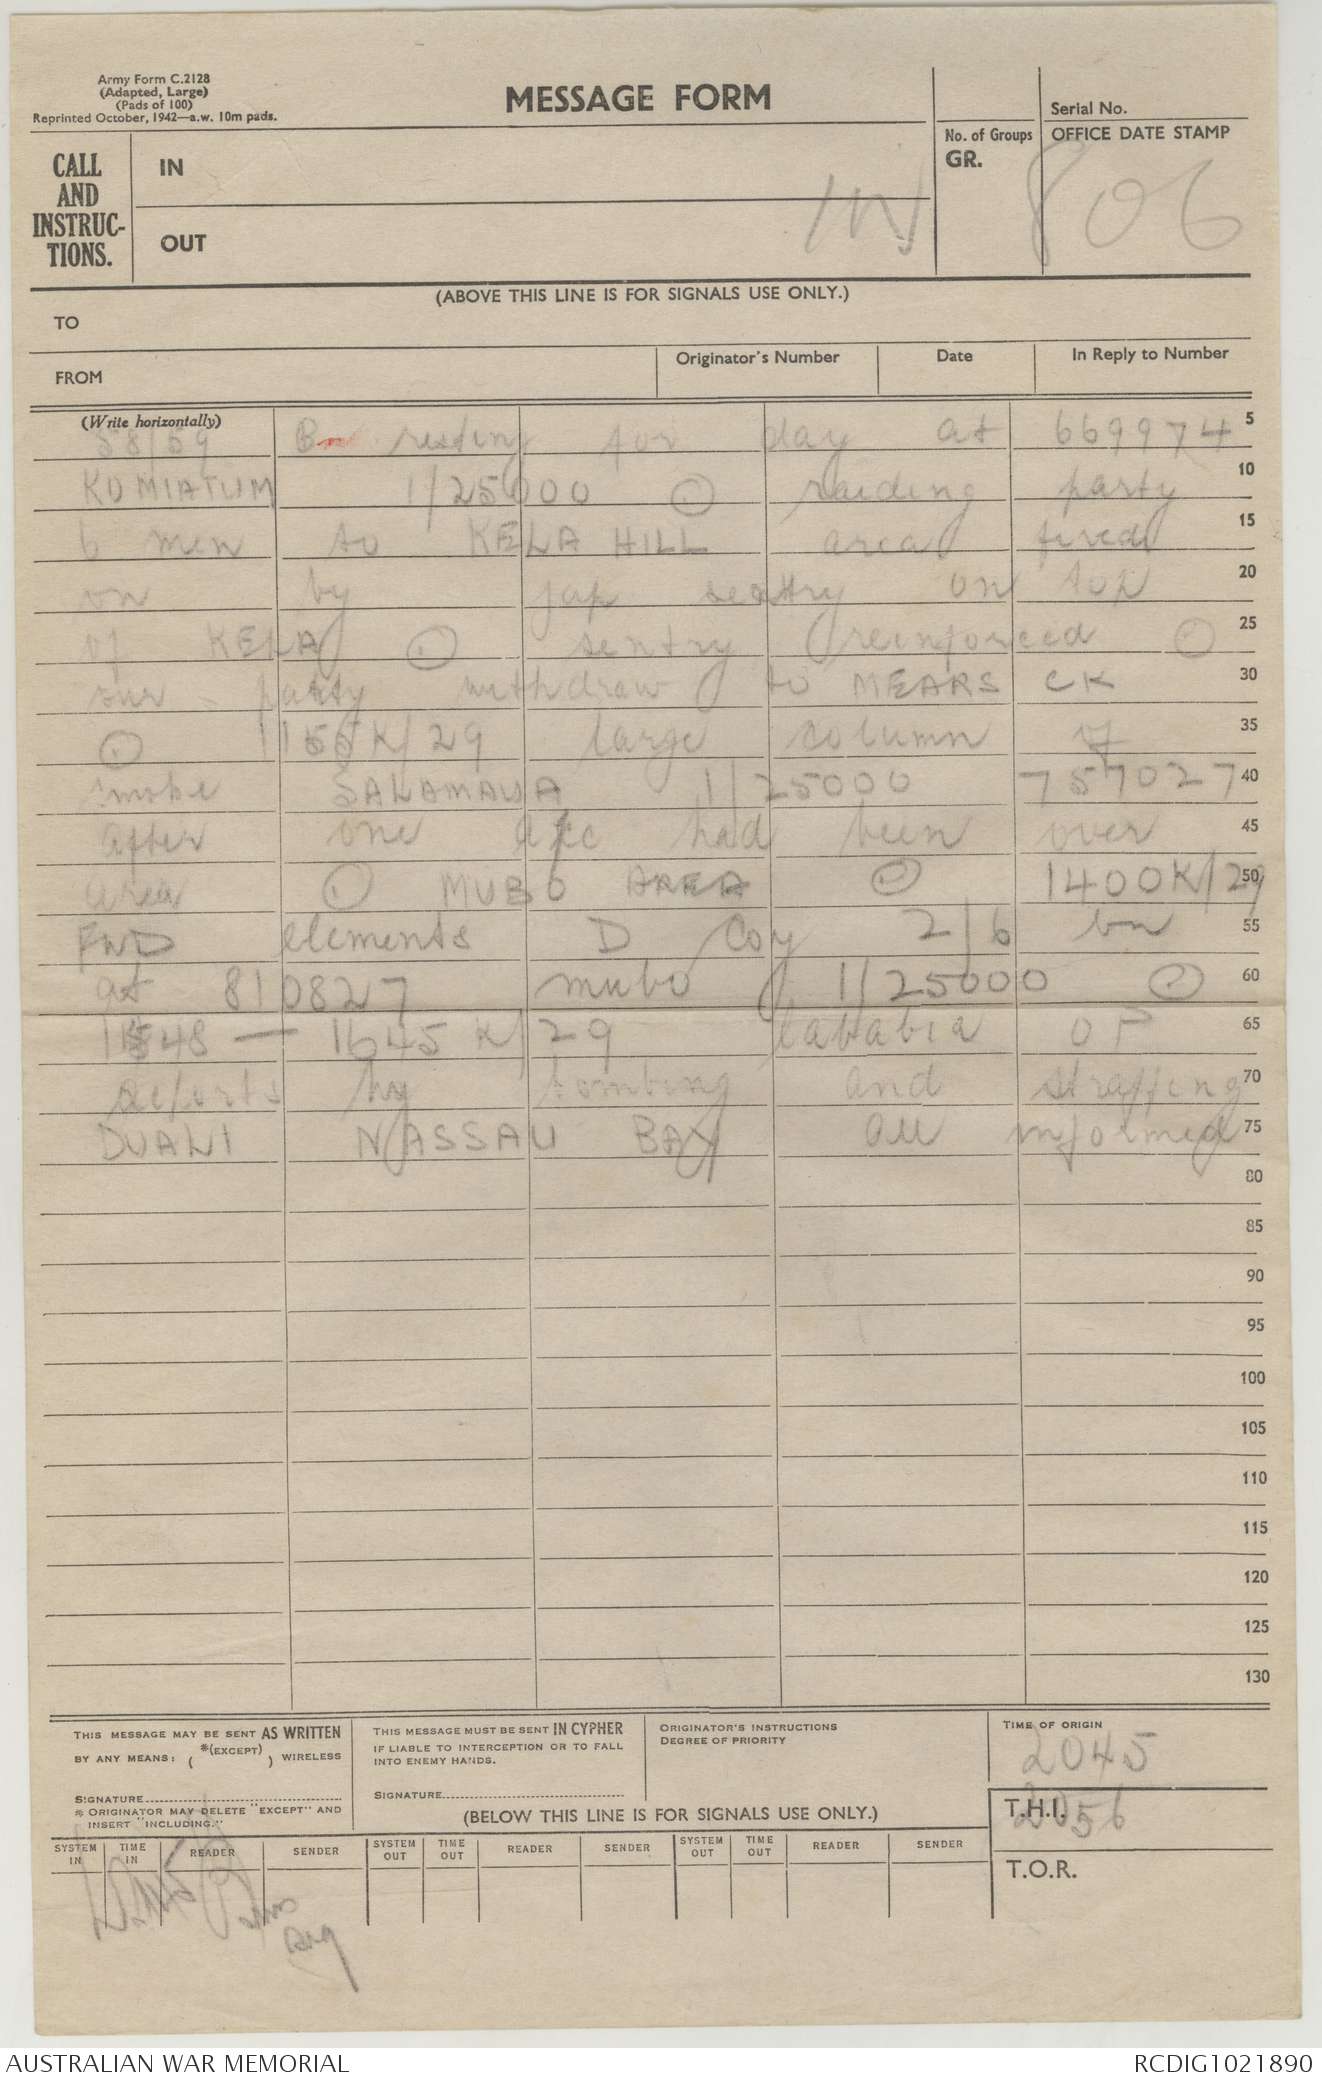 Army Form C.2128
(Adapted, Large)
(Pads of 100)
Reprinted October, 1942—a.w. 10m pads.
MESSAGE FORM
Serial No.
No. of Groups
GR.
OFFICE DATE STAMP
CALL
AND
INSTRUC-
TIONS.
IN
OUT
IN
806
(ABOVE THIS LINE IS FOR SIGNALS USE ONLY.)
TO
FROM
Originator's Number
Date
In Reply to Number
(Write horizontally)
58/59 resting for day at 669974 5
KOMIATUM 1/25000 raiding party 10
6 men to KELA HILL area fired 15
on by jap sentry on top 20
of KELA sentry reinforced 25
our party withdraw to MEARS CK 30
K/29 large column of 35
smoke SALAMAUA 1/25000 757027 40
after one a/c had been over 45
area MUBO AREA 1400K/29 50
FWD elements D Coy 2/6 bn 55
at 810827 mubo 1/25000 60
— 1645 K/29 labatia OP 65
reports hy bombing and straffing 70
DUALI NASSAU BAY all informed 75
80
85
90
95
100
105
110
115
120
125
130
THIS MESSAGE MAY BE SENT AS WRITTEN
BY ANY MEANS: ( *(EXCEPT) ) WIRELESS
SIGNATURE
* ORIGINATOR MAY DELETE "EXCEPT" AND
INSERT "INCLUDING."
THIS MESSAGE MUST BE SENT IN CYPHER
IF LIABLE TO INTERCEPTION OR TO FALL
INTO ENEMY HANDS.
SIGNATURE
ORIGINATOR'S INSTRUCTIONS
DEGREE OF PRIORITY
TIME OF ORIGIN
2045
(BELOW THIS LINE IS FOR SIGNALS USE ONLY.)
T.H.I.
2056
T.O.R.
SYSTEM IN
TIME IN
READER
SENDER
SYSTEM OUT
TIME OUT
READER
SENDER
SYSTEM OUT
TIME OUT
READER
SENDER
AUSTRALIAN WAR MEMORIAL
RCDIG1021890